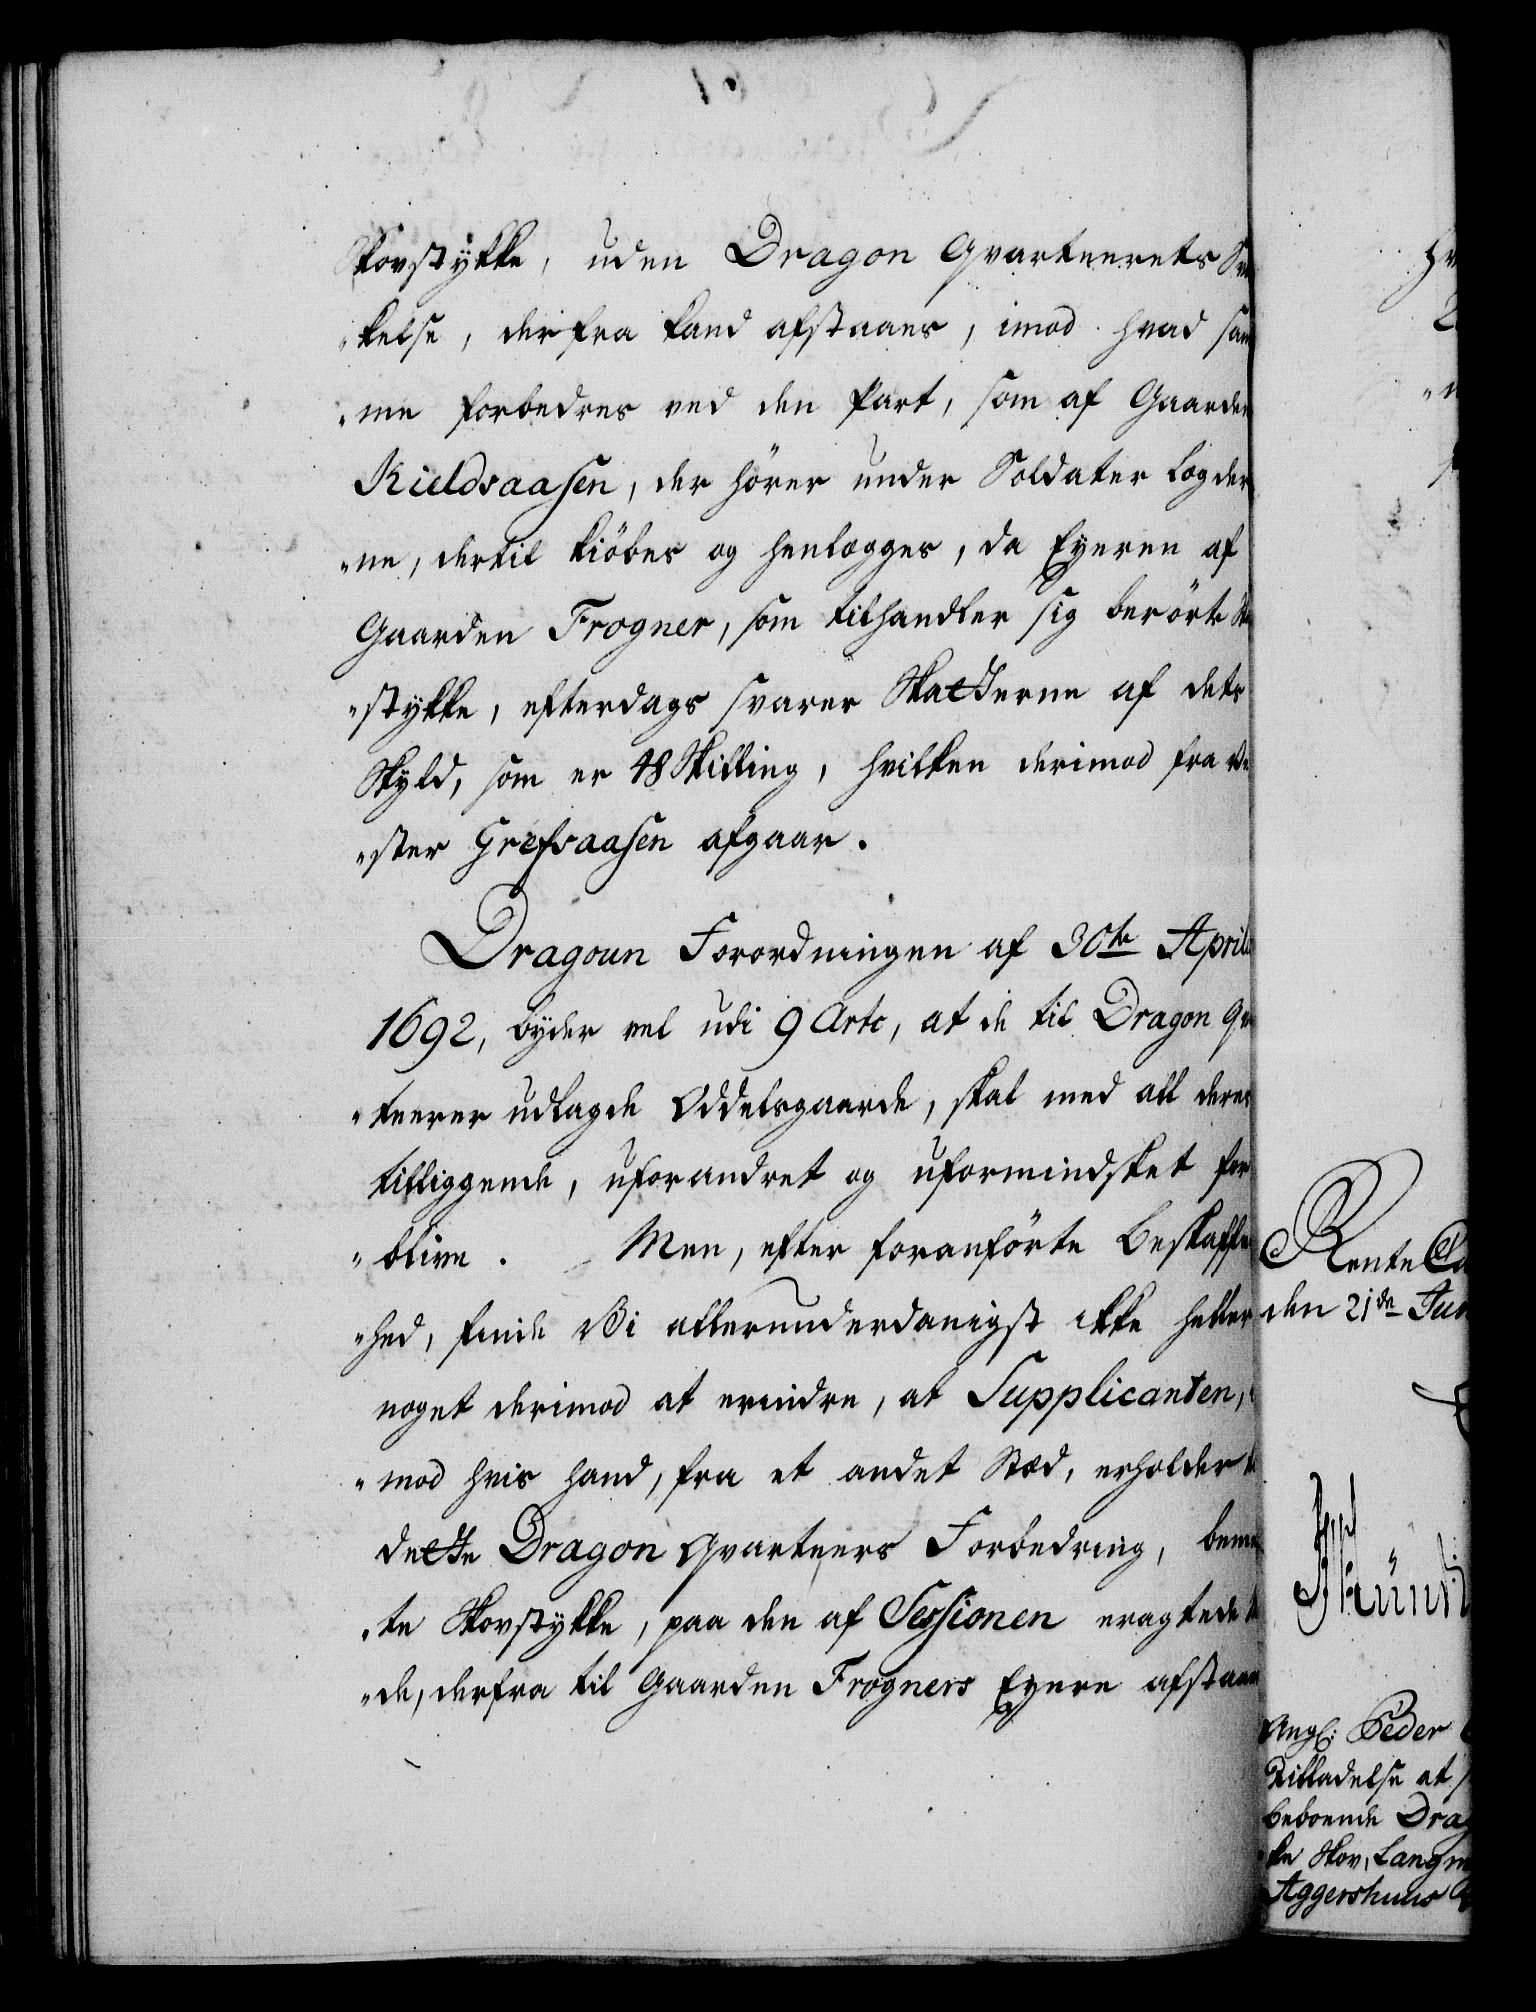 Skovstykke, uden Dragon Qvarteerets Sva
"kelse, derfra kand afstaaes, imod hvad sam
"me forbedres ved den Part, som af Gaarden
Kieldsaasen, der hörer under Soldater Lægder
"ne, dertil kiöbes og henlægges, da Eyeren af
Gaarden Frogner, som tilhandler sig berörte Sko
"stykke, efterdags svarer Skatterne af dets
Skyld, som er 48 Skilling, hvilken derimod fra Ve
"ster Grefsaasen afgaar.
Dragoun Forordningen af 30te Aprilis
1692, byder vel udi 9 Artc, at de til Dragon Qvar
"teerer udlagde Oddelsgaarde, skal med all deres
tilliggende, uforandret og uformindsket for
"blive. Men, efter foranförte Beskaffen
"hed, finde Vi allerunderdanigst ikke heller
noget derimod at erindre, at Supplicanten, i
"mod hvis hand, fra et andet Stæd, erholder til
dette Dragon Qvarteers Forbedring, bemel
"te Skovstykke, paa den af Sessionen eragtede Maa
"de, derfra til Gaarden Frogners Eyere afstaae
Rente Ca
den 21de Jun
Ang: Peder
Tilladelse at
beboende Drag
ke Skov, Langm
Aggershuus